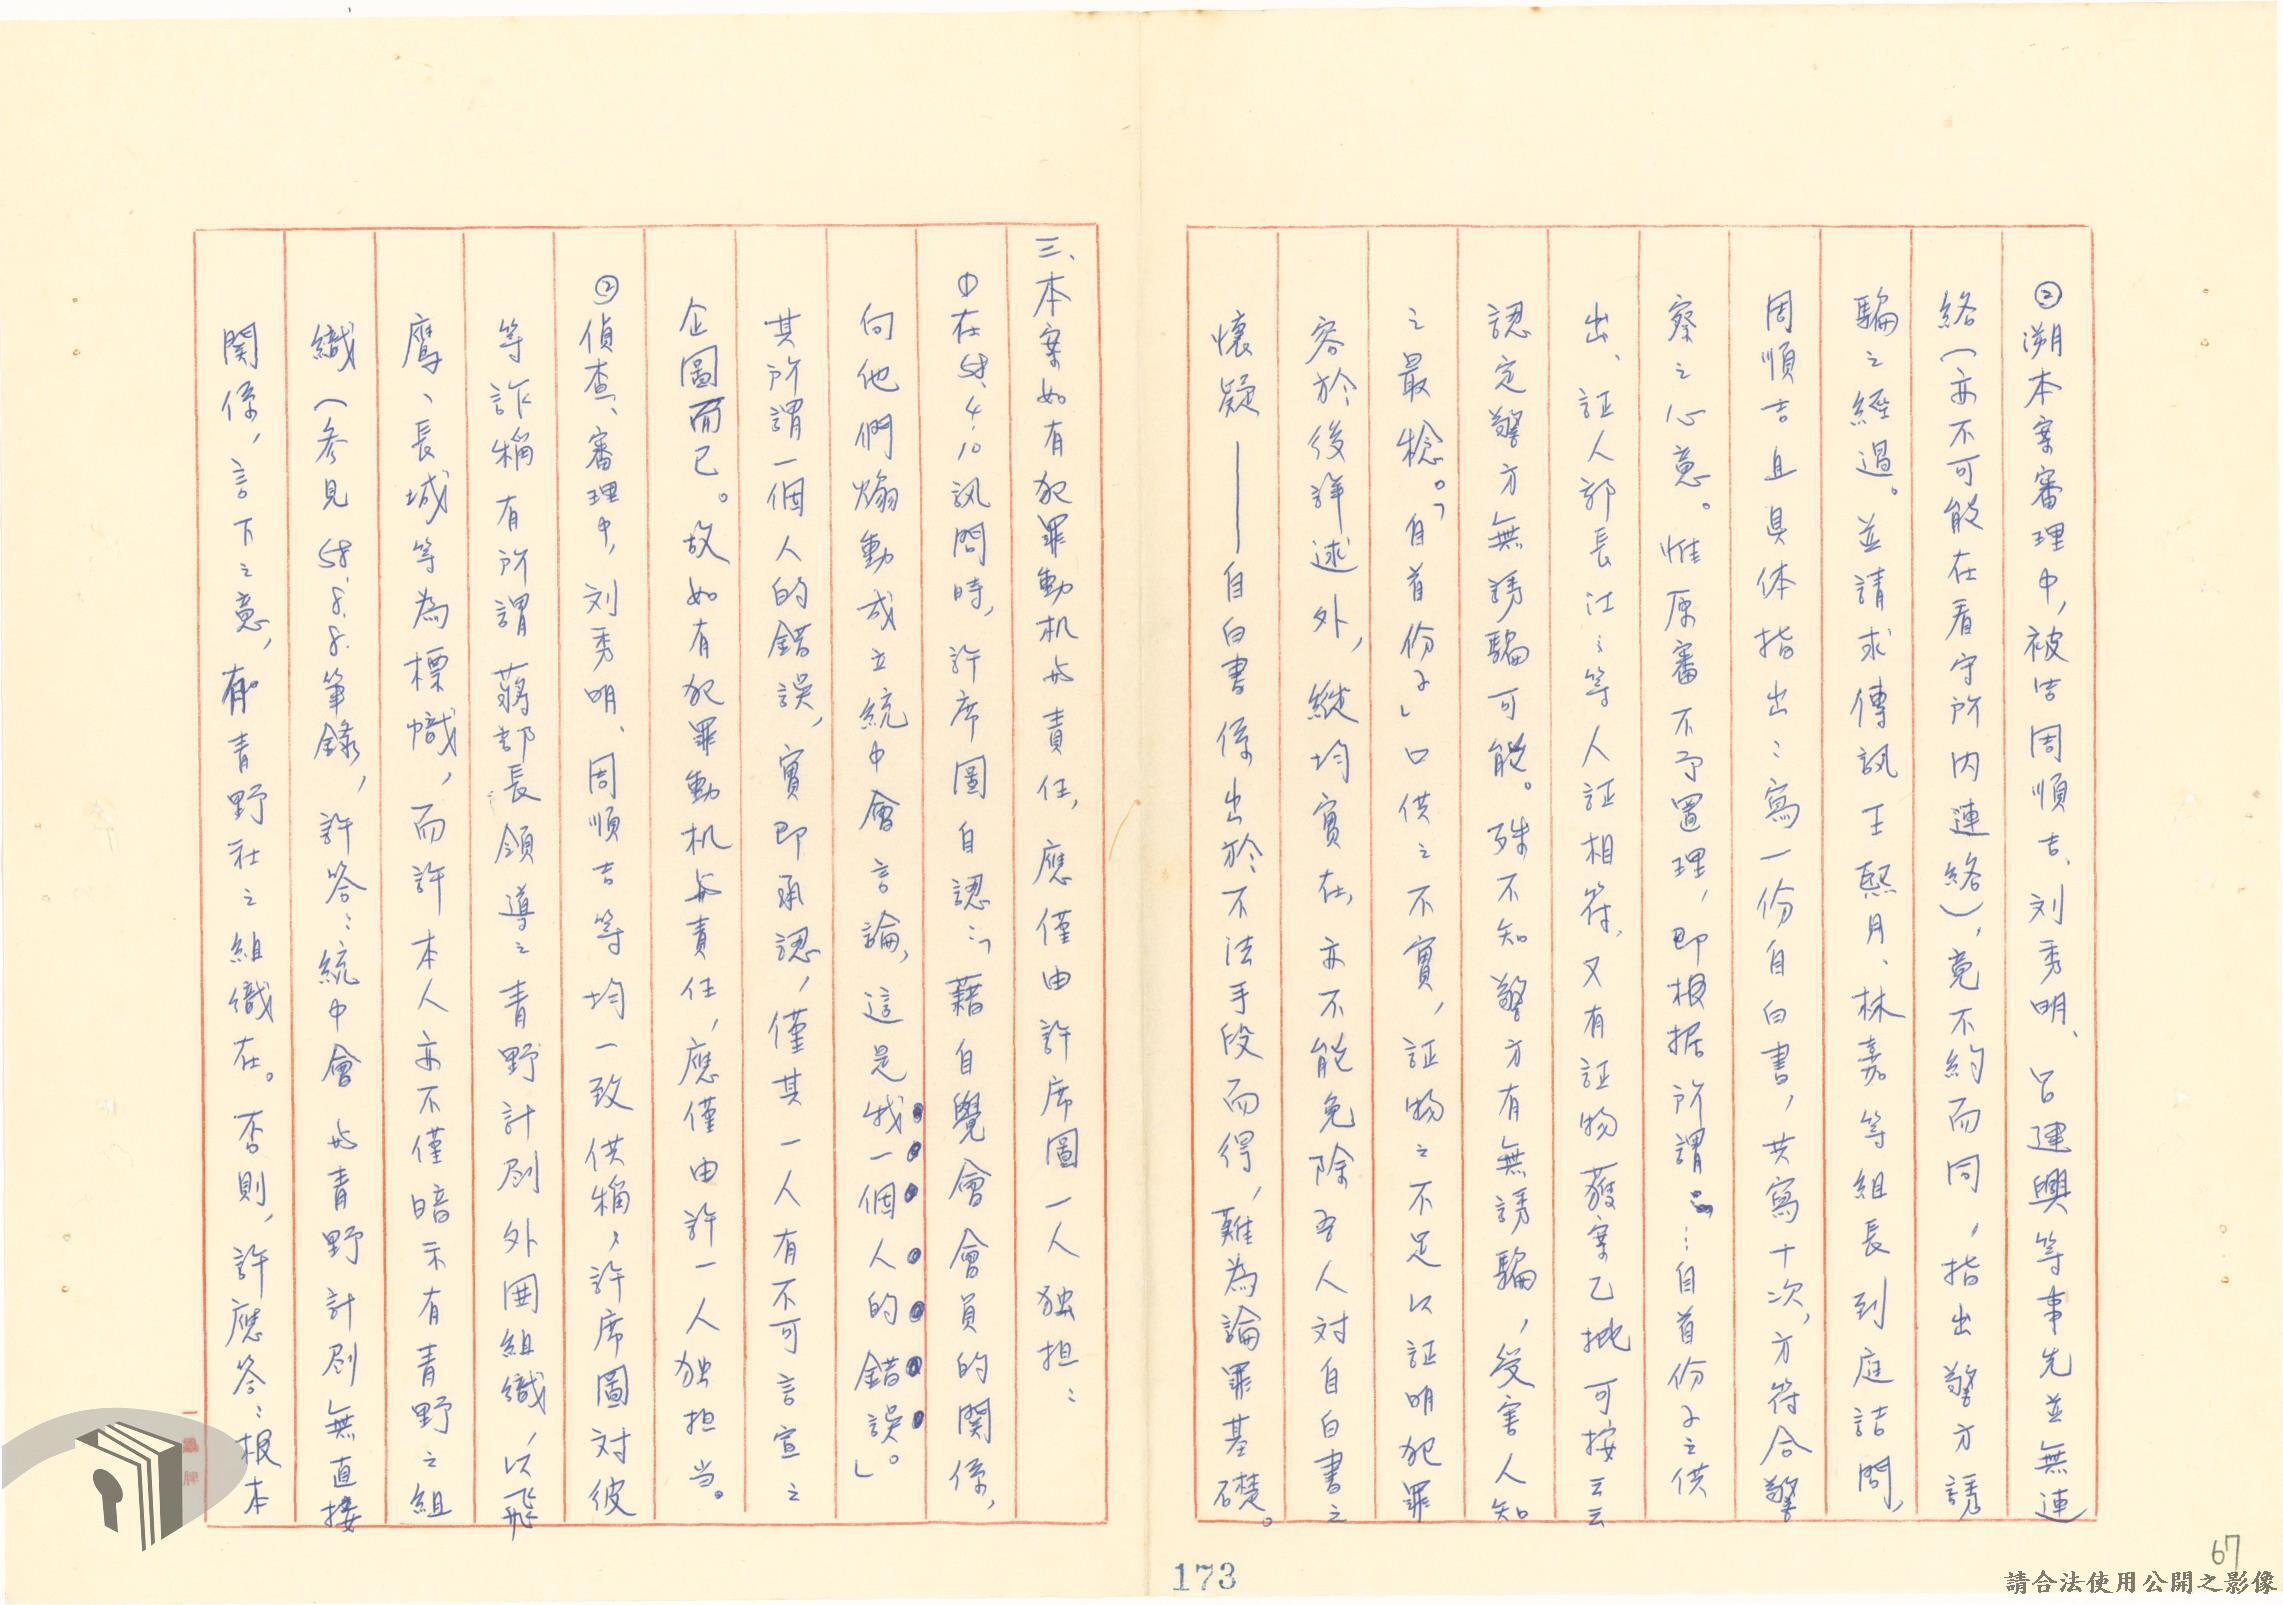 ②溯本案審理中，被告周順吉、刘秀明、呂建興等事先並無連
絡（亦不可能在看守所內連絡），竟不約而同，指出警方誘
騙之經過。並請求傳訊王熙月、林嘉等組長到庭詰問，
周順吉且具体指出：寫一份自白書，共寫十次，方符合警
察之心意。惟原審不予置理，即根据所謂：自首份子之供
出、証人郭長江等人証相符，又有証物獲案乙批可按云云
認定警方無誘騙可能。殊不知警方有無誘騙，受害人知
之最稔。「自首份子」口供之不實，証物之不足以証明犯罪
容於後詳述外，縱均實在，亦不能免除吾人対自白書之
懷疑——自白書係出於不法手段而得，難為論罪基礎。
三、本案如有犯罪動机与責任，應僅由許席圖一人独担：
①在58.4.10訊問時，許席圖自認：「藉自覺會會員的関係，
向他們煽動成立統中會言論，這是我一個人的錯誤。」
其所謂一個人的錯誤，實即承認，僅其一人有不可言宣之
企圖而已。故如有犯罪動机与責任，應僅由許一人独担当。
②偵查、審理中，刘秀明、周順吉等均一致供稱，許席圖対彼
等詐稱有所謂蔣部長領導之青野計劃外囲組織，以飛
鷹、長城等為標幟，而許本人亦不僅暗示有青野之組
織（參見58.8.8.筆錄，許答：統中會与青野計劃無直接
関係，言下之意，有青野社之組織在。否則，許應答：根本
173
67
請合法使用公開之影像